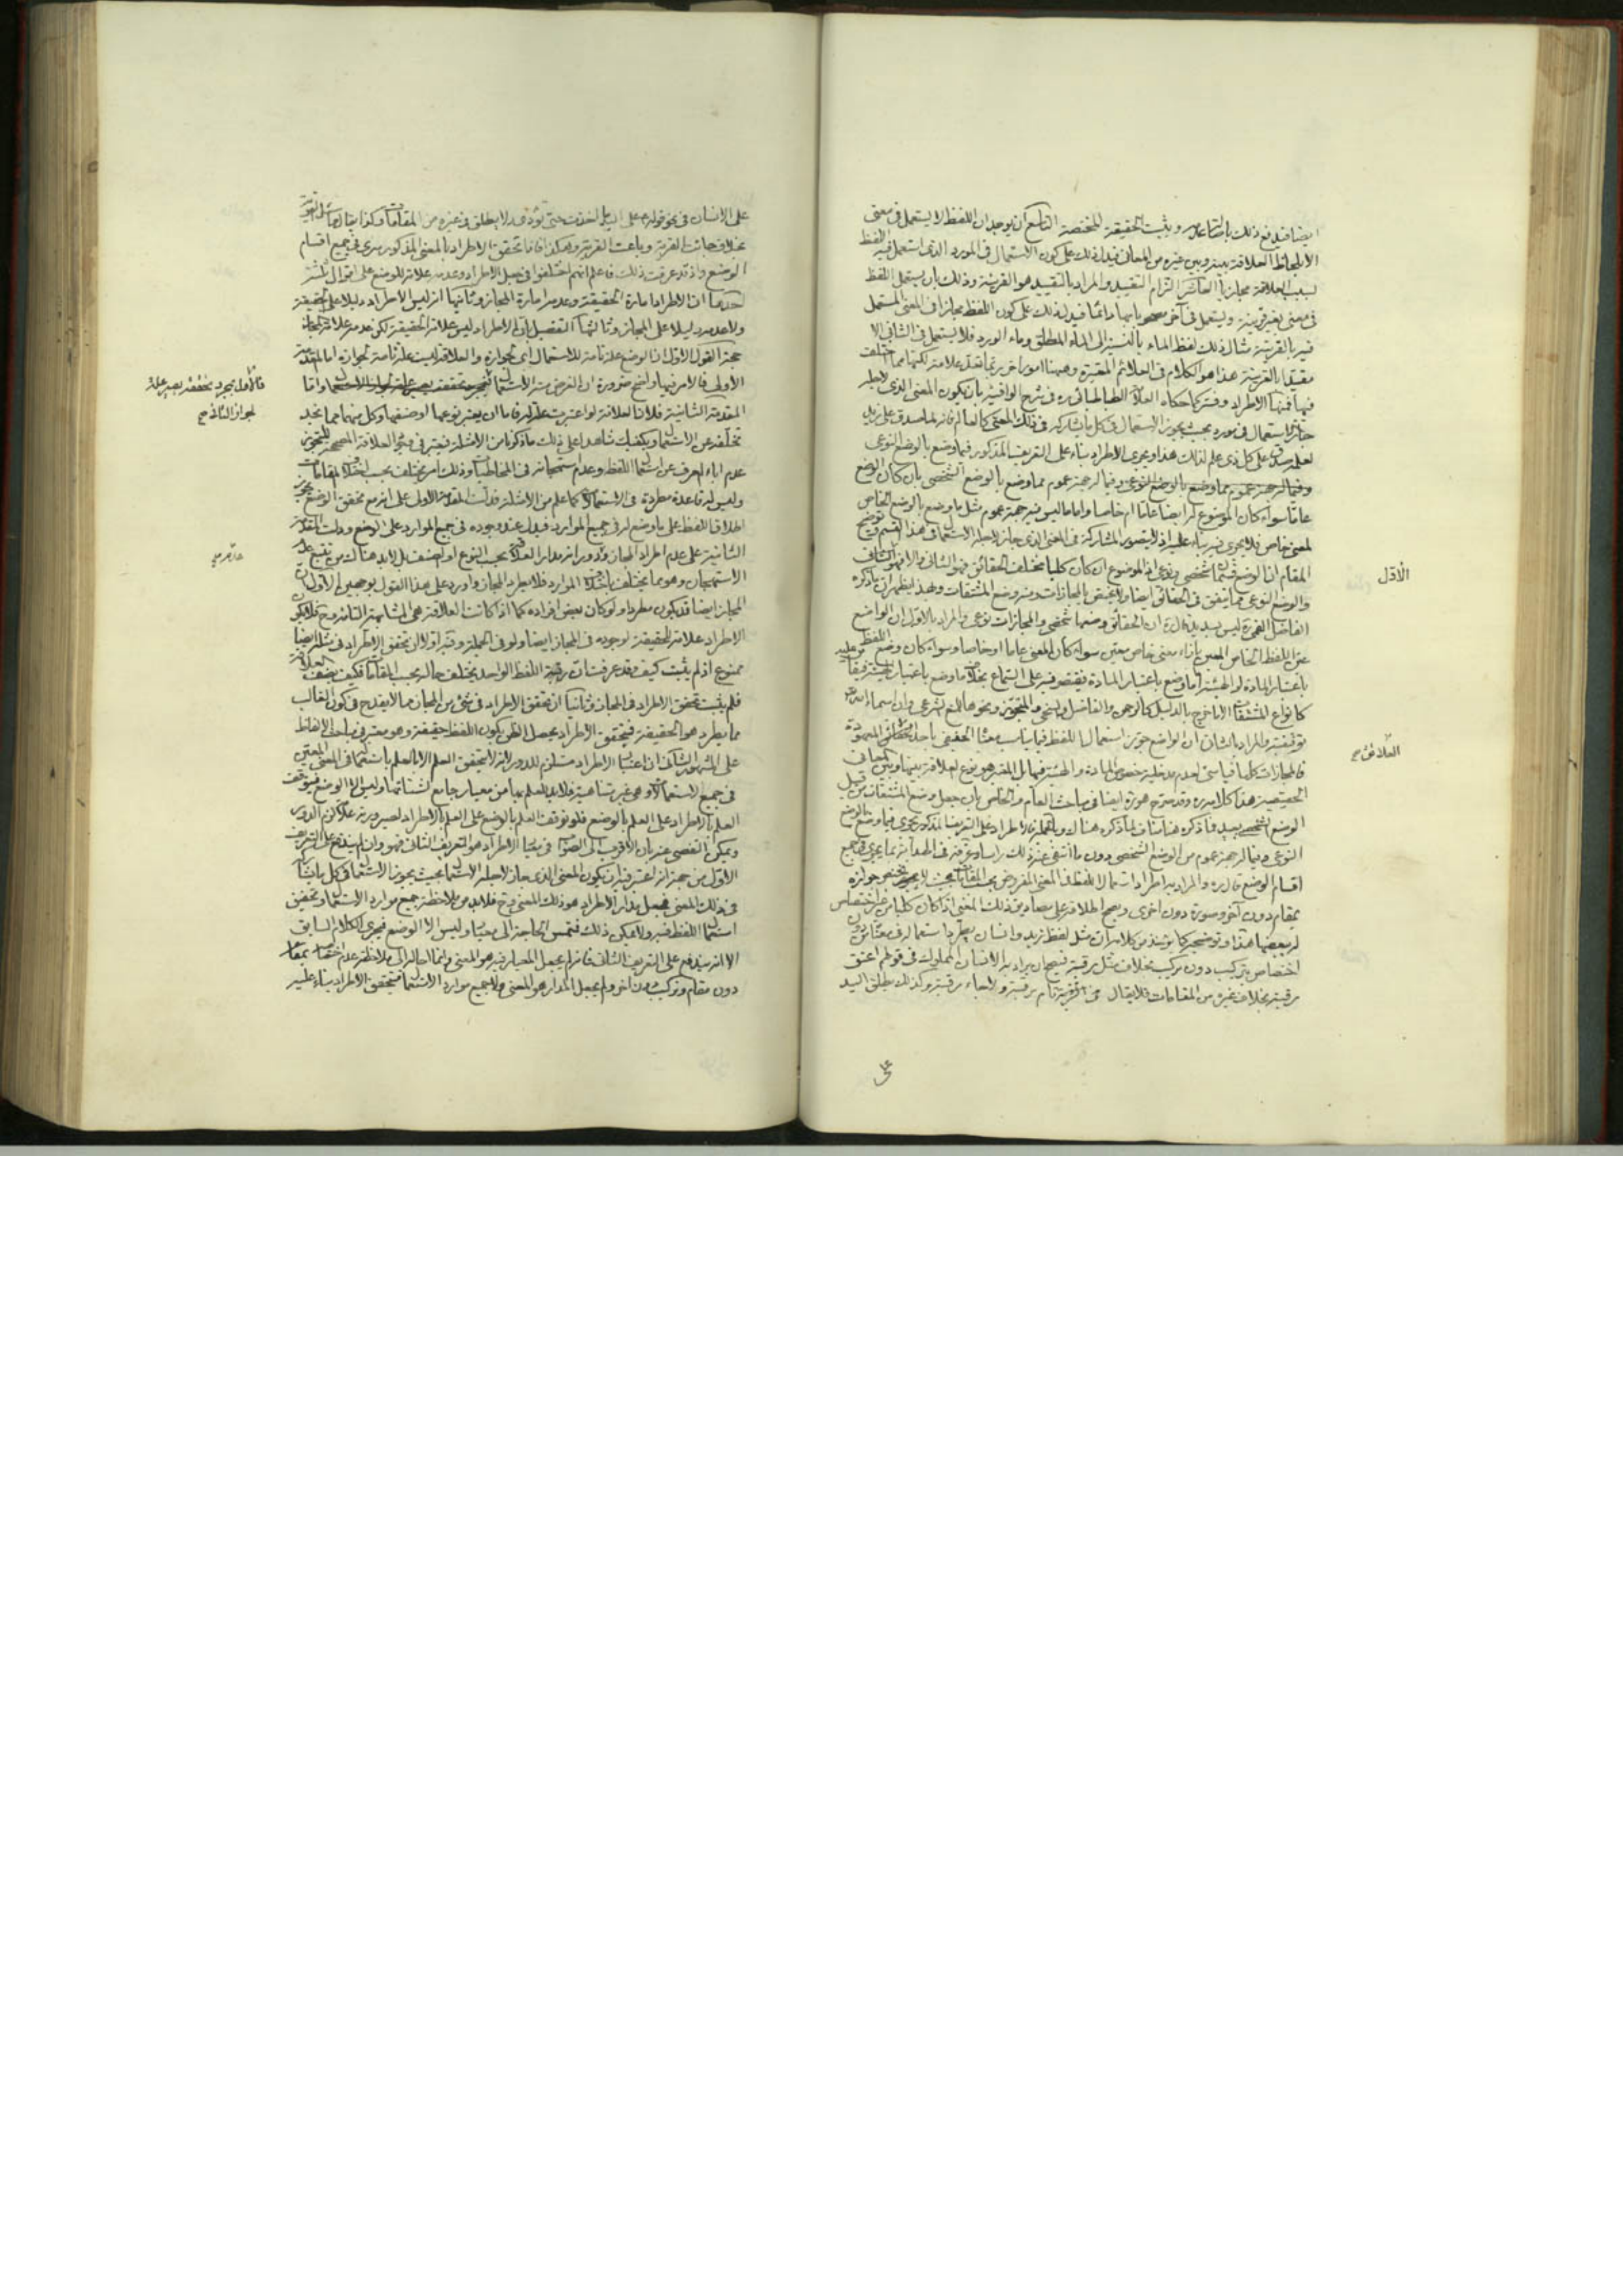 ايضا فيدفع ذلك باصالة عدمه ويثبت الحقيقة المختصة التاسع ان يوجد ان اللفظ لا يستعمل في معنى
الا بلحاظ العلاقة بينه وبين غيره من المعاني فيدل ذلك على كون الاستعمال في المورد الذي استعمل فيه اللفظ
بسبب العلاقة مجازيا العاشر التزام التقييد والمراد بالتقييد هو القرينة وذلك بان يستعمل اللفظ
في معنى بغير قرينة ويستعمل في آخر بها دائما فيدل ذلك على كون اللفظ مجازا في المعنى المستعمل
فيه بالقرينة مثال ذلك لفظ الماء بالنسبة الى الماء المطلق وماء الورد فلا يستعمل في الثاني الا
مقيدا بالقرينة هذا هو الكلام في العلائم المعتبرة وهيهنا امور اخر ربما تعد علامة لكنها مما اختلفت
فيها فمنها الاطراد وفسر كما حكاه العلامة الطباطبائي ره في شرح الوافية بان يكون المعنى الذي لاجله
جاز الاستعمال في مورده بحيث يجوز الاستعمال في كل ما يشاركه في ذلك المعنى كالعالم فانه لما صدق على زيد
لعلمه صدق على كل ذي علم لذلك هذا ويجري الاطراد بناء على التعريف المذكور فيما وضع بالوضع النوعي
وفيما له جهة عموم مما وضع بالوضع الشخصي بان كان الوضع
عاما سواء كان الموضوع له ايضا عاما ام خاصا واما ما ليس فيه جهة عموم مثل ما وضع بالوضع الخاص
لمعنى خاص فلا يجري فيه بناء عليه اذ لا يتصور المشاركة في المعنى الذي جاز لاجله الاستعمال في هذا القسم وتوضيح
المقام ان الوضع قسمان شخصي ونوعي اذ الموضوع ان كان كليا مختلف الحقائق فهو الثاني والا فهو الشخصي
والوضع النوعي مما يتفق في الحقائق ايضا ولا يختص بالمجازات ومنه وضع المشتقات وبهذا يظهر ان ما ذكره
الفاضل القمي ره ليس بسديد قال ره ان الحقائق وضعها شخصي والمجازات نوعي والمراد بالاول ان الواضع
عين اللفظ الخاص المعين بازاء معنى خاص معين سواء كان المعنى عاما او خاصا وسواء كان وضع اللفظ
باعتبار المادة او الهيئة اما وضع باعتبار المادة فيقتصر فيه على السماع بخلاف ما وضع باعتبار الهيئة فيقاس عليه
كانواع المشتقات الا ما خرج بالدليل كالرحمن والفاضل والسخي والمتجوز ونحوها للمنع الشرعي وان اسماء الله
توقيفية والمراد بالثاني ان الواضع جوز استعمال اللفظ فيما يناسب معناه الحقيقي باحد العلائق المعهودة
فالمجازات كلها قياسي لعدم مدخلية خصوص المادة والهيئة فيها بل المعتبر هو نوع العلاقة بينها وبين المعاني
الحقيقية هذا كلامه ره وقد صرح هو ره ايضا في مباحث العام والخاص بان جعل وضع المشتقات من قبيل
الوضع الشخصي بعيد فما ذكره هنا مناف لما ذكره هناك وبالجملة فالاطراد على التعريف المذكور يجري فيما وضع بالوضع
النوعي وفيما له جهة عموم من الوضع الشخصي دون ما انتفى عنه ذلك
اقسام الوضع قال ره والمراد به اطراد استعمال اللفظ في المعنى المفروض بحسب المقامات بحيث لا يختص جوازه
بمقام دون آخر وصورة دون اخرى ويصح اطلاقه على مصاديق ذلك المعنى اذا كان كليا من غير اختصاص
له ببعضها هذا وتوضيحه كما يستفيد من كلامه ان مثل لفظ زيد وانسان يطرد استعماله في معناه من دون
اختصاص بتركيب دون تركيب بخلاف مثل رقبة فيصح ان يراد به الانسان المملوك في قولهم اعتق
رقبة بخلاف غيره من المقامات فلا يقال نام رقبة ولا جاء رقبة وكذلك يطلق اليد
على
الاول
العلائق صح
على الانسان في نحو قوله ع على اليد ما اخذت حتى تؤدي ولا يطلق في غيره من المقامات وكذا يقال اسئل القرية
بخلاف جائت القرية وباعت القرية وهكذا فاذا تحقق الاطراد بالمعنى المذكور يسري في جميع اقسام
الوضع واذ قد عرفت ذلك فاعلم انهم اختلفوا في جعل الاطراد وعدمه علامة للوضع على اقوال ثلثة
احدها ان الاطراد امارة الحقيقة وعدمه امارة المجاز وثانيها انه ليس الاطراد دليلا على الحقيقة
ولا عدمه دليلا على المجاز وثالثها التفصيل بان الاطراد ليس علامة الحقيقة لكن عدمه علامة المجاز
حجة القول الاول ان الوضع علة تامة للاستعمال اي لجوازه والعلاقة ليست علة تامة لجوازه اما المقدمة
الاولى فالامر فيها واضح ضرورة ان الغرض منه الاستعمال واما
المقدمة الثانية فلان العلاقة لو اعتبرت علة له فاما ان يعتبر نوعها او صنفها وكل منهما مما نجد
تخلفه عن الاستعمال ويكفيك شاهدا على ذلك ما ذكرنا من الامثلة فيعتبر في العلاقة المصححة للتجوز
عدم اباء العرف عن استعمال اللفظ وعدم استهجانه في المخاطبات وذلك امر يختلف بحسب اختلاف المقامات
وليس له قاعدة مطردة في الاستعمالات كما علم من الامثلة فدلت المقدمة الاولى على انه مع تحقق الوضع يجوز
اطلاق اللفظ على ما وضع له في جميع الموارد فيدل عند وجوده في جميع الموارد على الوضع ودلت المقدمة
الثانية على عدم اطراد المجاز ودورانه مدار العلاقة بحسب النوع او الصنف بل لا بد هناك من تتبع عدم
الاستهجان وهو مما يختلف باختلاف الموارد فلا يطرد المجاز واورد على هذا القول بوجهين الاول ان
المجاز ايضا قد يكون مطردا ولو كان بعض افراده كما اذا كانت العلاقة هي المشابهة التامة وح فلا يكون
الاطراد علامة للحقيقة لوجوده في المجاز ايضا ولو في الجملة وفيه اولا ان تحقق الاطراد في مثله ايضا
ممنوع اذ لم يثبت كيف وقد عرفت ان رقبة اللفظ الواحد يختلف حاله بحسب المقامات فكيف بصنف العلاقة
فلم يثبت تحقق الاطراد في المجاز وثانيا ان تحقق الاطراد في شيء من المجاز مما لا يقدح في كون الغالب
مما يطرد هو الحقيقة فبتحقق الاطراد يحصل الظن بكون اللفظ حقيقة وهو معتبر في مباحث الالفاظ
على المشهور الثاني ان اعتبار الاطراد مستلزم للدور لانه لا يتحقق العلم الا بالعلم باستعماله في المعنى المعين
في جميع الاستعمالات وهي غير متناهية فلا بد للعلم بها من معيار جامع لشتاتها وليس الا الوضع فيتوقف
العلم بالاطراد على العلم بالوضع فلو توقف العلم بالوضع على العلم بالاطراد لصيرورته علامة لزم الدور
ويمكن التفصي عنه بان الاقرب الى الصواب في معنى الاطراد هو التعريف الثاني فهو وان لم يندفع على التعريف
الاول من جهة انه اعتبر فيه ان يكون المعنى الذي جاز لاجله الاستعمال بحيث يجوز الاستعمال في كل ما يشاركه
في ذلك المعنى فجعل مدار الاطراد هو ذلك المعنى وح فلا بد من ملاحظة جميع موارد الاستعمال وتحقيق
استعمال اللفظ فيه ولا يمكن ذلك فتمس الحاجة الى معيار وليس الا الوضع فيجري الكلام السابق
الا انه يندفع على التعريف الثاني فانه لم يجعل المعيار فيه هو المعنى وانما احاله الى ملاحظة عدم اختصاصه بمقام
دون مقام وتركيب دون آخر ولم يجعل المدار هو المعنى ولا جميع موارد الاستعمال فيتحقق الاطراد بناء عليه
فالاول بمجرد تحققه يصير علة
لجواز التأدي صح